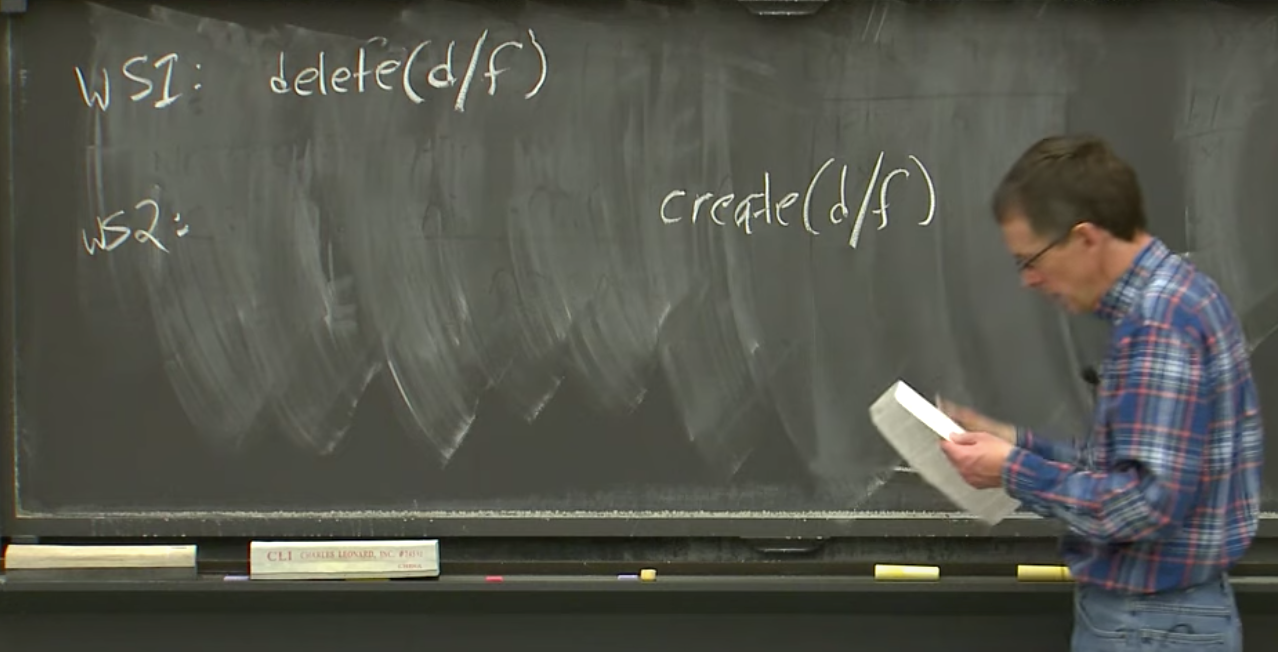 WS1: delete(d/f)
WS2: create(d/f)
CLI CHARLES LEONARD, INC.